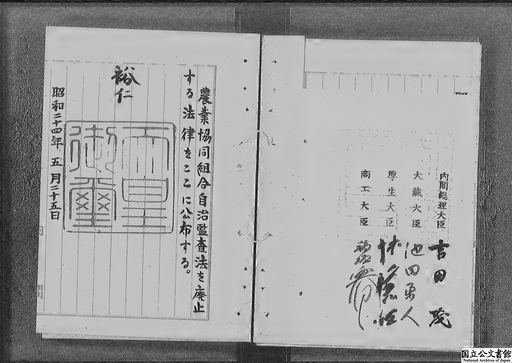 農業協同組合自治監査法を廃止
する法律をここに公布する。
裕仁
天皇
御璽
昭和二十四年五月二十五日
内閣総理大臣 吉田茂
大蔵大臣 池田勇人
厚生大臣 林譲治
商工大臣
国立公文書館
National Archives of Japan